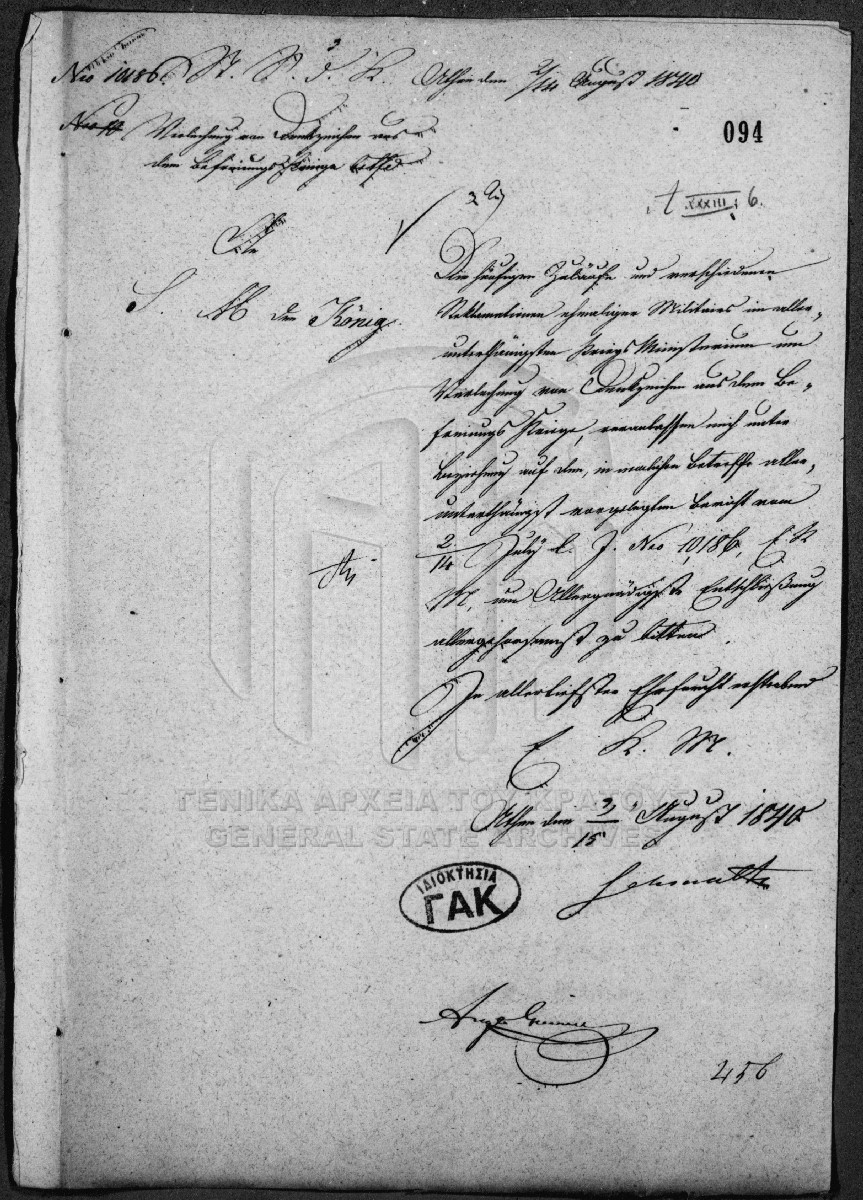 Nro 10186. St. S. d. K. Athen den 2/14 August 1840
Verleihung von Denkzeichen aus
dem Befreiungs Kriege betfd
094
A XXXIII; 6.
An
S. M. den König.
Die häufigen Zuläufe und verschiedenen
Reklamationen ehemaliger Militairs im aller-
unterthänigsten Kriegs Ministerium um
Verleihung von Denkzeichen aus dem Be-
freiungs Kriege, veranlassen mich unter
Beziehung auf den, in malichen Betreffe aller-
unterthänigst vorgelegten Bericht vom
2/14 July l. J. Nro 10,186, E. K.
M. um Allergnädigste Entschließung
allergehorsamst zu bitten.
In allertiefster Ehrfurcht erstrebend
E. K. M.
Athen den 3/15 August 1840
Schmaltz
ΓΕΝΙΚΑ ΑΡΧΕΙΑ ΤΟΥ ΚΡΑΤΟΥΣ
GENERAL STATE ARCHIVES
ΙΔΙΟΚΤΗΣΙΑ
ΓΑΚ
456